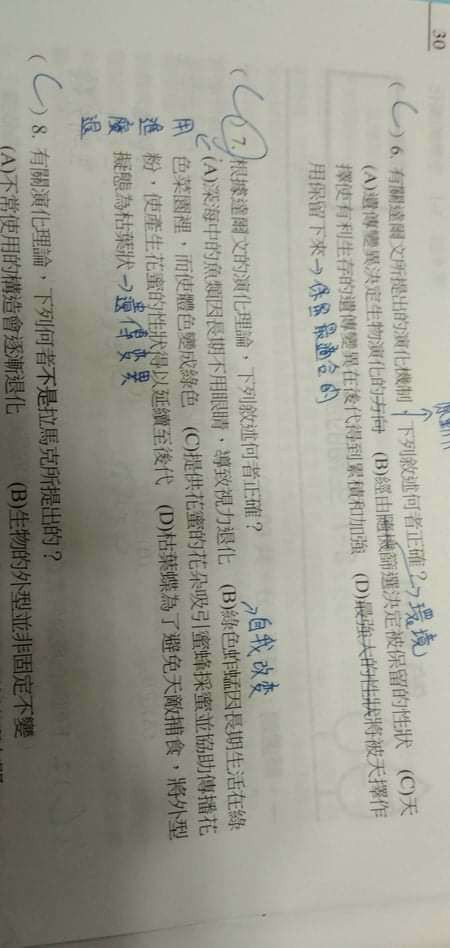 30
(C) 6. 有關達爾文所提出的演化機制，下列敘述何者正確？→環境
(A)遺傳變異決定生物演化的方向 (B)經由隨機篩選決定被保留的性狀 (C)天
擇使有利生存的遺傳變異在後代得到累積和加強 (D)最強大的性狀將被天擇作
用保留下來→保留最適合的
(C) 7. 根據達爾文的演化理論，下列敘述何者正確？
→自我改變
用進廢退
(A)深海中的魚類因長期不用眼睛，導致視力退化 (B)綠色蚱蜢因長期生活在綠
色菜園裡，而使體色變成綠色 (C)提供花蜜的花朵吸引蜜蜂採蜜並協助傳播花
粉，使產生花蜜的性狀得以延續至後代 (D)枯葉蝶為了避免天敵捕食，將外型
擬態為枯葉狀→遺傳變異
(C) 8. 有關演化理論，下列何者不是拉馬克所提出的？
(A)不常使用的構造會逐漸退化 (B)生物的外型並非固定不變